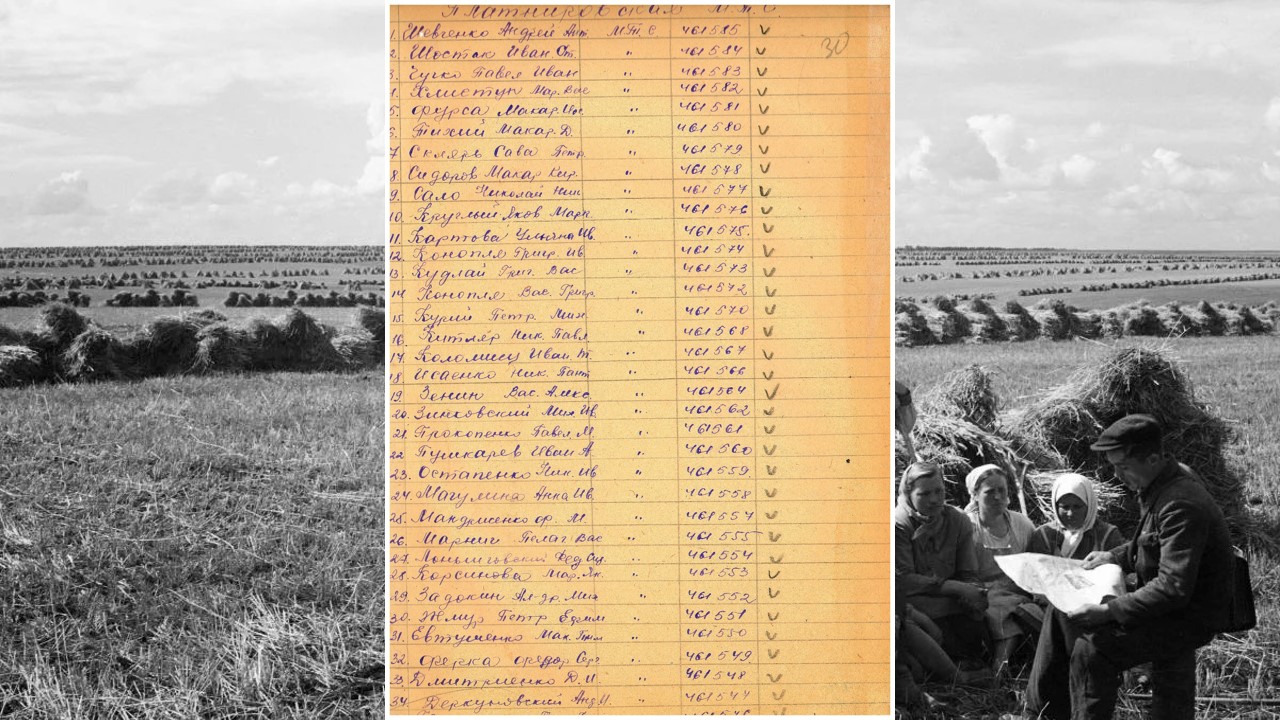 Платнировская М.Т.С.
30
1. Шевченко Андрей Ант М.Т.С 461585 v
2. Шостак Иван Ст. " 461584 v
3. Чучко Павел Иван " 461583 v
4. Хлистун Мар. Вас " 461582 v
5. Фурса Макар " 461581 v
6. Тихий Макар. Д. " 461580 v
7 Скляр Сава Петр. " 461579 v
8. Сидоров Макар Кир. " 461578 v
9. Сало Николай Ник " 461577 v
10. Круглый Яков Марк. " 461576 v
11. Карпова Ульяна Ив. " 461575. v
12. Конопля Григ. Ив " 461574 v
13. Кудлай Григ. Вас " 461573 v
14 Конопля Вас. Григр. " 461572 v
15. Курий Петр. Мих " 461570 v
16. Китляр Ник. Павл " 461568 v
17. Коломиец Иван. Т. " 461567 v
18. Исаенко Ник. Пант " 461566 v
19. Зенин Вас. Алекс. " 461564 v
20. Зинковский Мих Ив " 461562 v
21. Прокопенко Павел М " 461561 v
22 Пушкарев Иван А. " 461560 v
23. Остапенко Ник. Ив " 461559. v
24. Магулина Анна Ив " 461558 v
25. М. " 461557 v
26. Марнич Пелаг Вас " 461555 v
27. Фед " 461554 v
28. Корсинова Мар. Як. " 461553 v
29. Задокин Ал-др. Мих " 461552 v
30. Жмур Петр Ефим " 461551 v
31. Евтушенко Мак. Григ " 461550 v
32. Ферка Федор Серг. " 461549. v
33 Дмитриенко Д. И. " 461548 v
34. Деркуновский Анд И. " 461547 v